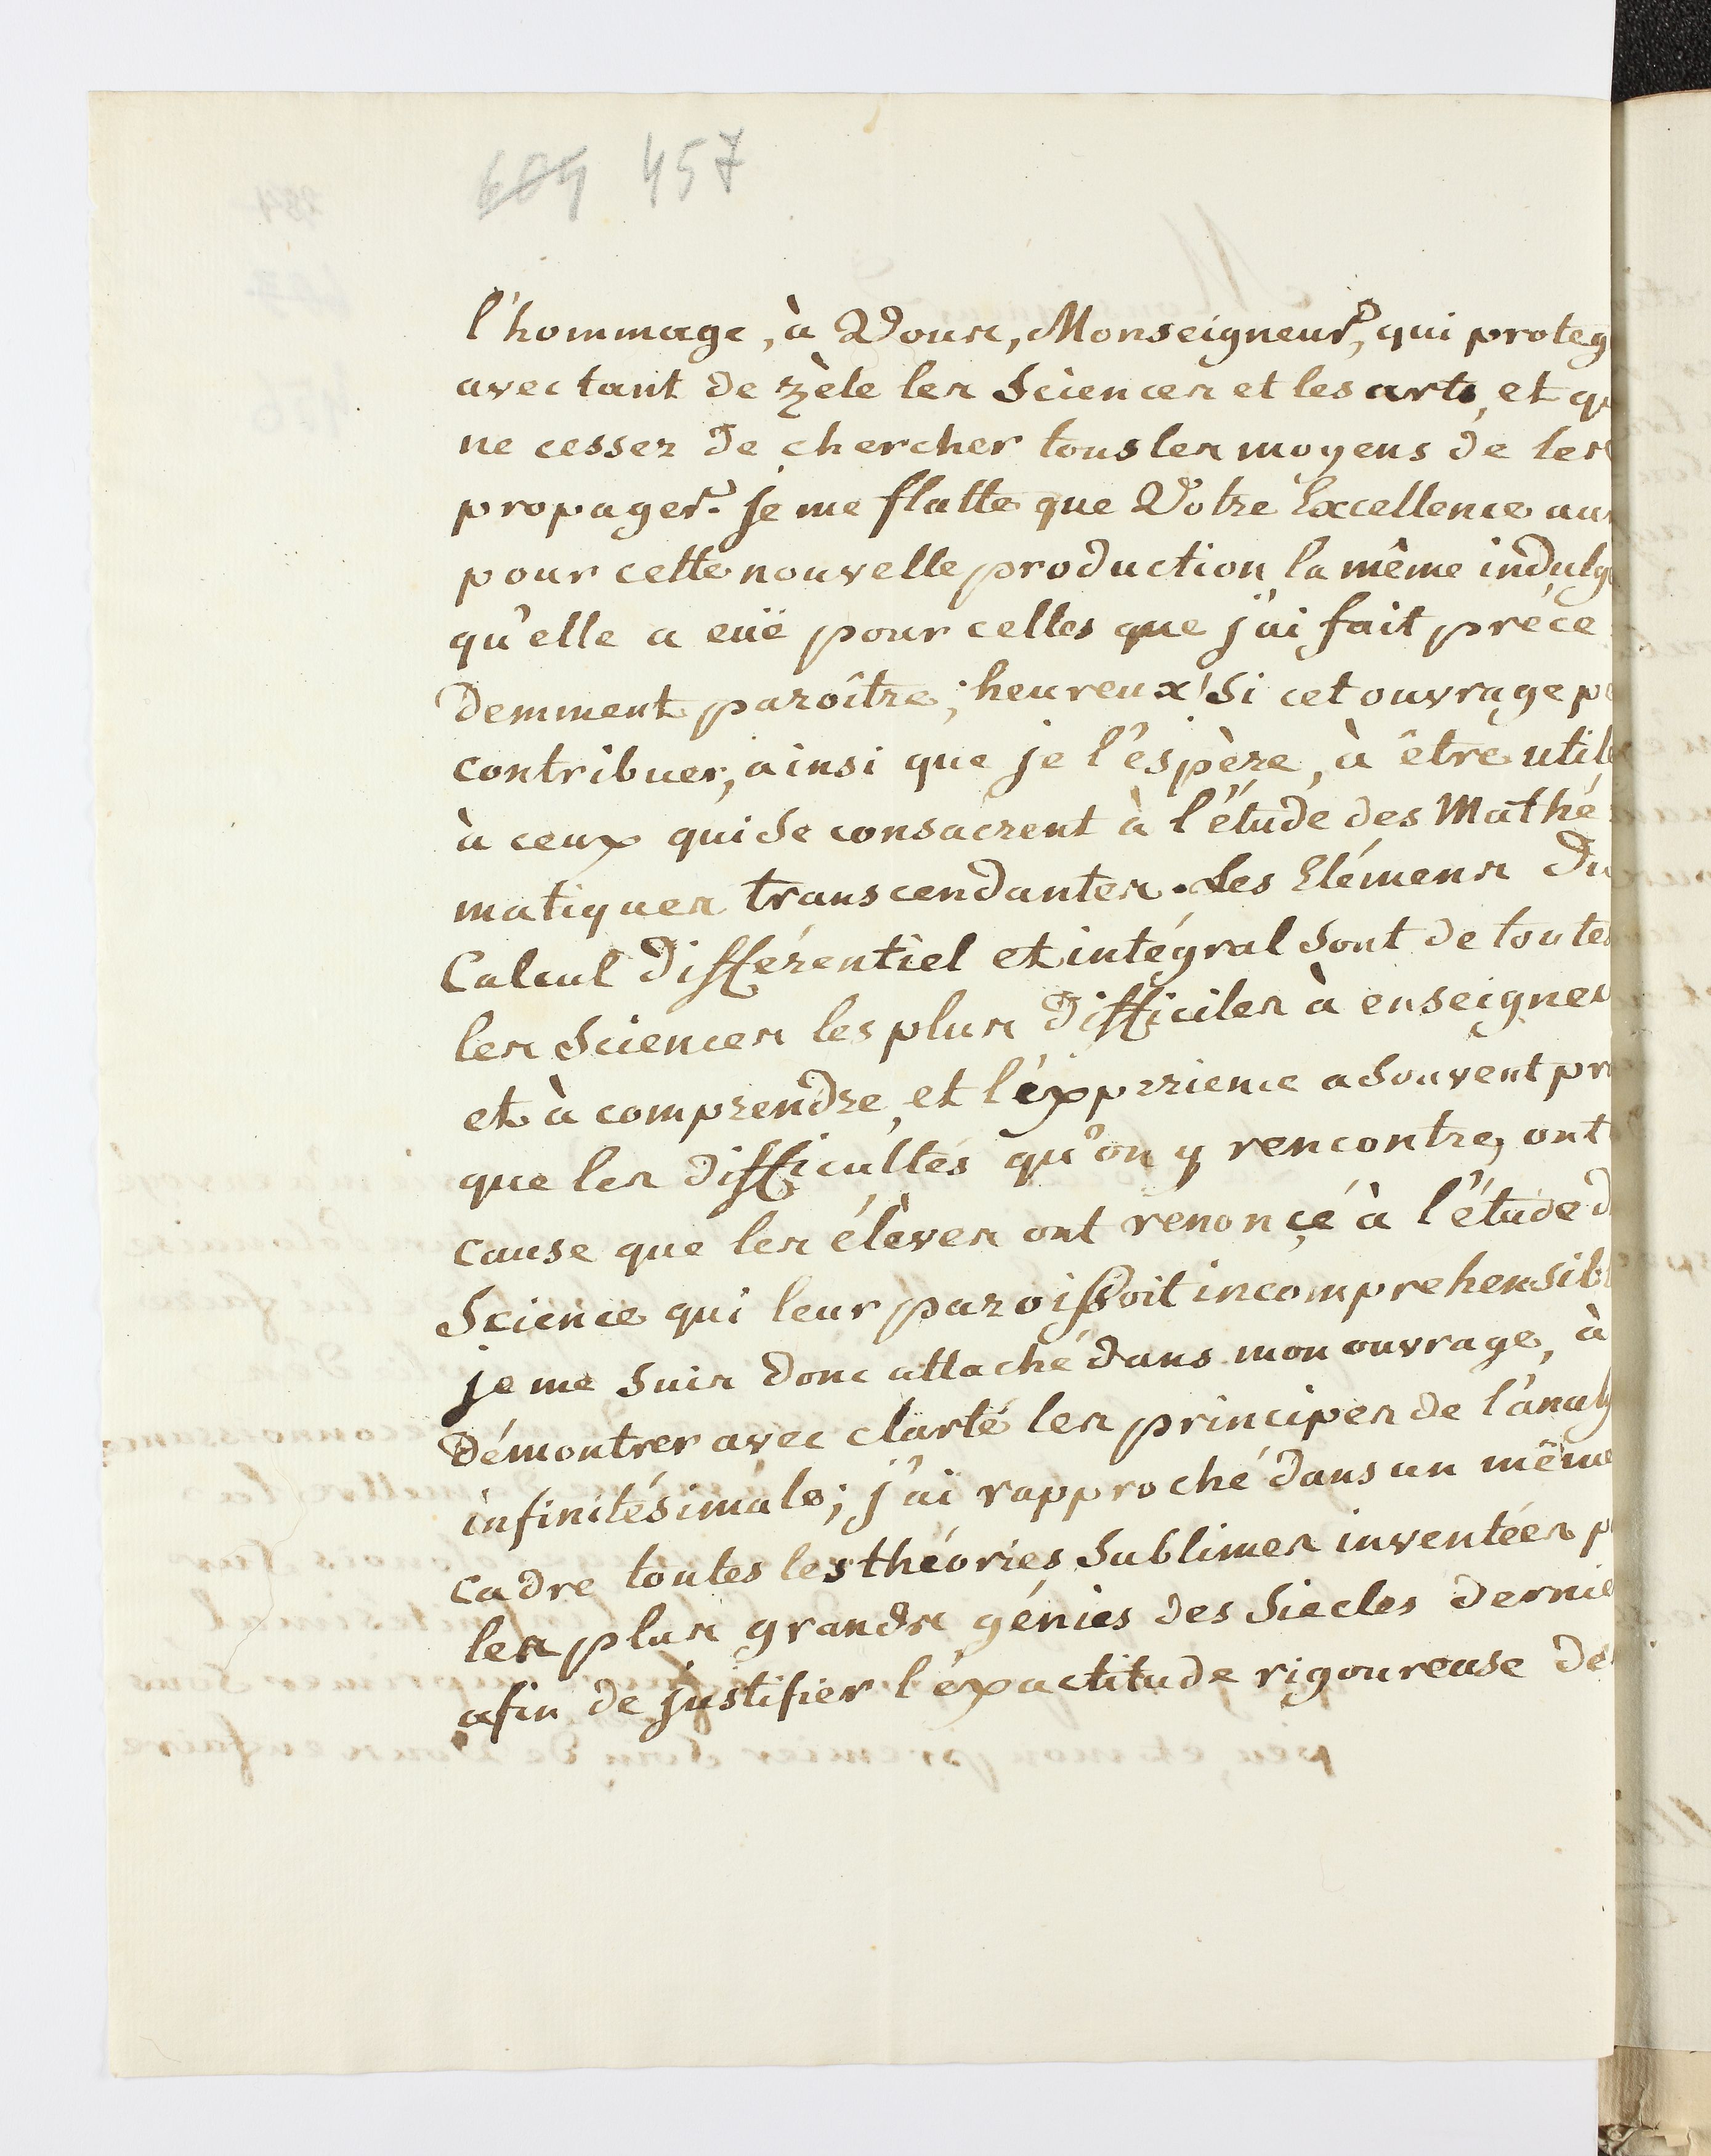 609 457
l'hommage, à Vous, Monseigneur, qui proteg
avec tant de zèle les Sciences et les arts, et qu
ne cessez de chercher tous les moyens de les
propager. je me flatte que Votre Excellence au
pour cette nouvelle production la même indulge
qu'elle a euë pour celles que j'ai fait préce
demment paroître; heureux! Si cet ouvrage pe
contribuer, ainsi que je l'espère, à être utile
à ceux qui Se consacrent à l'étude des Mathé
matiques transcendantes. Les Elémens du
Calcul différentiel et intégral Sont de toutes
les Sciences les plus difficiles à enseigner
et à comprendre, et l'éxpérience a Souvent pr
que les difficultés qu'on y rencontre, ont
cause que les élèves ont renonçé à l'étude d
Science qui leur paroissoit incomprehensibl
je me Suis donc attaché dans mon ouvrage, à
démontrer avec clarté les principes de l'analy
infinitésimale; j'ai rapproché dans un même
cadre toutes les théories Sublimes inventées p
les plus grands génies des Siecles dernie
afin de justifier l'éxactitude rigoureuse de